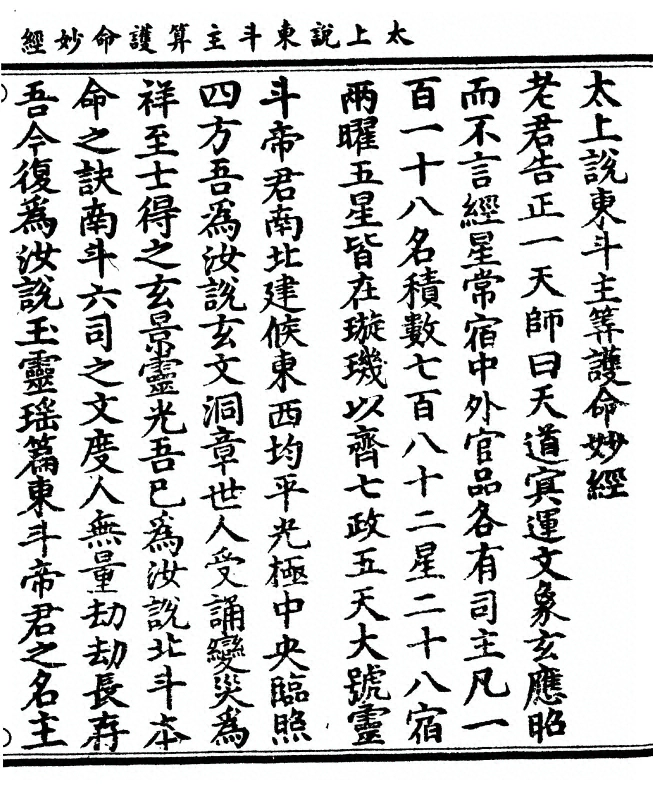 太上說東斗主算護命妙經
太上說東斗主筭護命妙經
老君告正一天師曰天道冥運文象玄應昭
而不言經星常宿中外官品各有司主凡一
百一十八名積數七百八十二星二十八宿
兩曜五星皆在璇璣以齊七政五天大號靈
斗帝君南北建候東西均平光極中央臨照
四方吾為汝說玄文洞章世人受誦變災為
祥至士得之玄景靈光吾已為汝說北斗本
命之訣南斗六司之文度人無量劫劫長存
吾今復為汝說玉靈瑶篇東斗帝君之名主